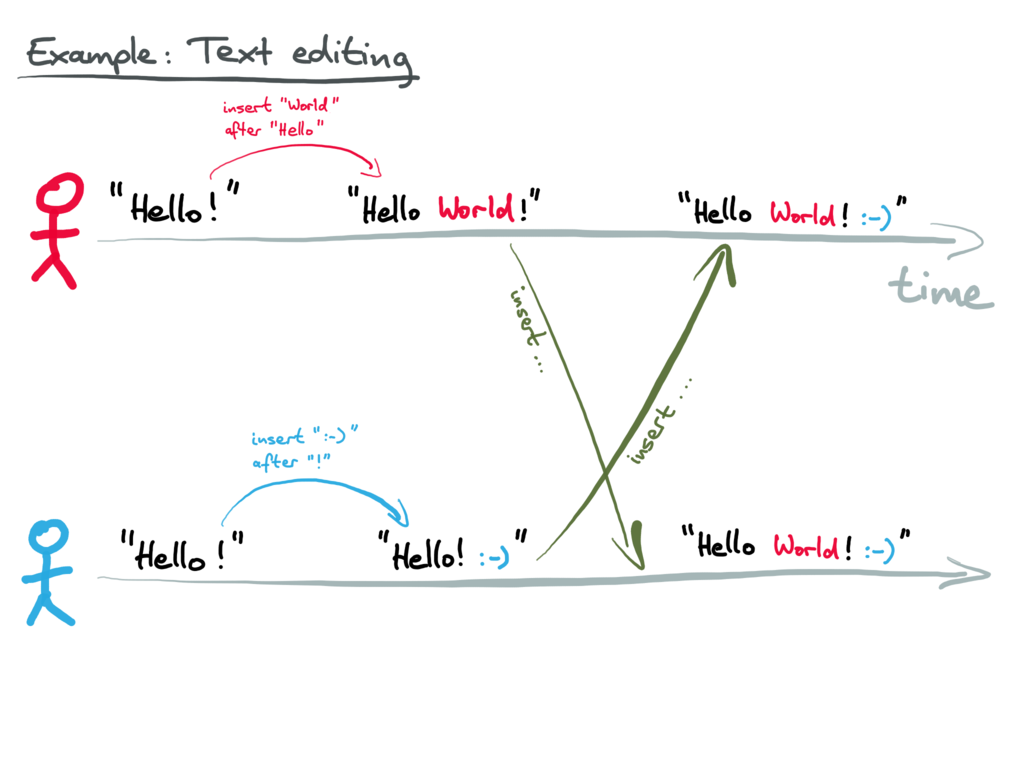 Example: Text editing
insert "World"
after "Hello"
"Hello!"
"Hello World!"
"Hello World! :-)"
time
insert ...
insert ....
insert ":-)"
after "!"
"Hello!"
"Hello! :-)"
"Hello World! :-)"